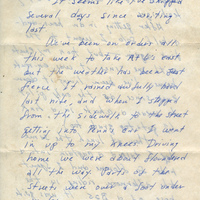 It seems like I've skipped
several days since writing
last.
We've been on orders all
this week to take
but the weather has been just
fierce. It rained awfully hard
last nite, and when I stepped
from the sidewalk to the street
getting into car I went
in up to my knees. Driving
home we were about flooded
all the way. Parts of the
streets were over a foot under